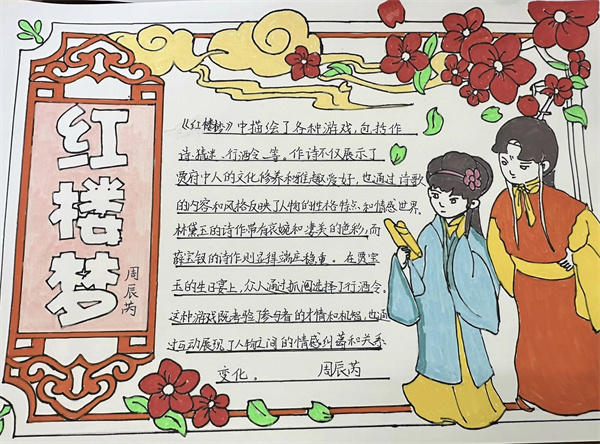 红楼梦
周辰芮
《红楼梦》中描绘了各种游戏,包括作
诗、猜迷、行酒令等。作诗不仅展示了
贾府中人的文化修养和雅趣爱好,也通过诗歌
的内容和风格反映了人物的性格特点和情感世界.
林黛玉的诗作带有哀婉和凄美的色彩,而
薛宝钗的诗作则显得端庄稳重。在贾宝
玉的生日宴上,众人通过抓阄选择了行酒令.
这种游戏既考验了参与者的才情和机智,也通
过互动展现了人物之间的情感纠葛和关系
变化。 周辰芮